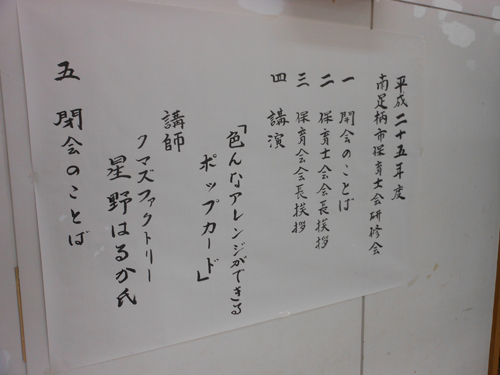 平成二十五年度
南足柄市保育士会研修会
一 開会のことば
二 保育士会会長挨拶
三 保育会会長挨拶
四 講演
「色んなアレンジができる
ポップカード」
講師
クマズファクトリー
星野はるか氏
五 閉会のことば